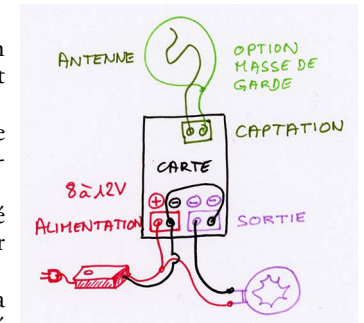 ANTENNE
OPTION
MASSE DE
GARDE
CAPTATION
CARTE
8 à 12V
+ - - -
ALIMENTATION
SORTIE